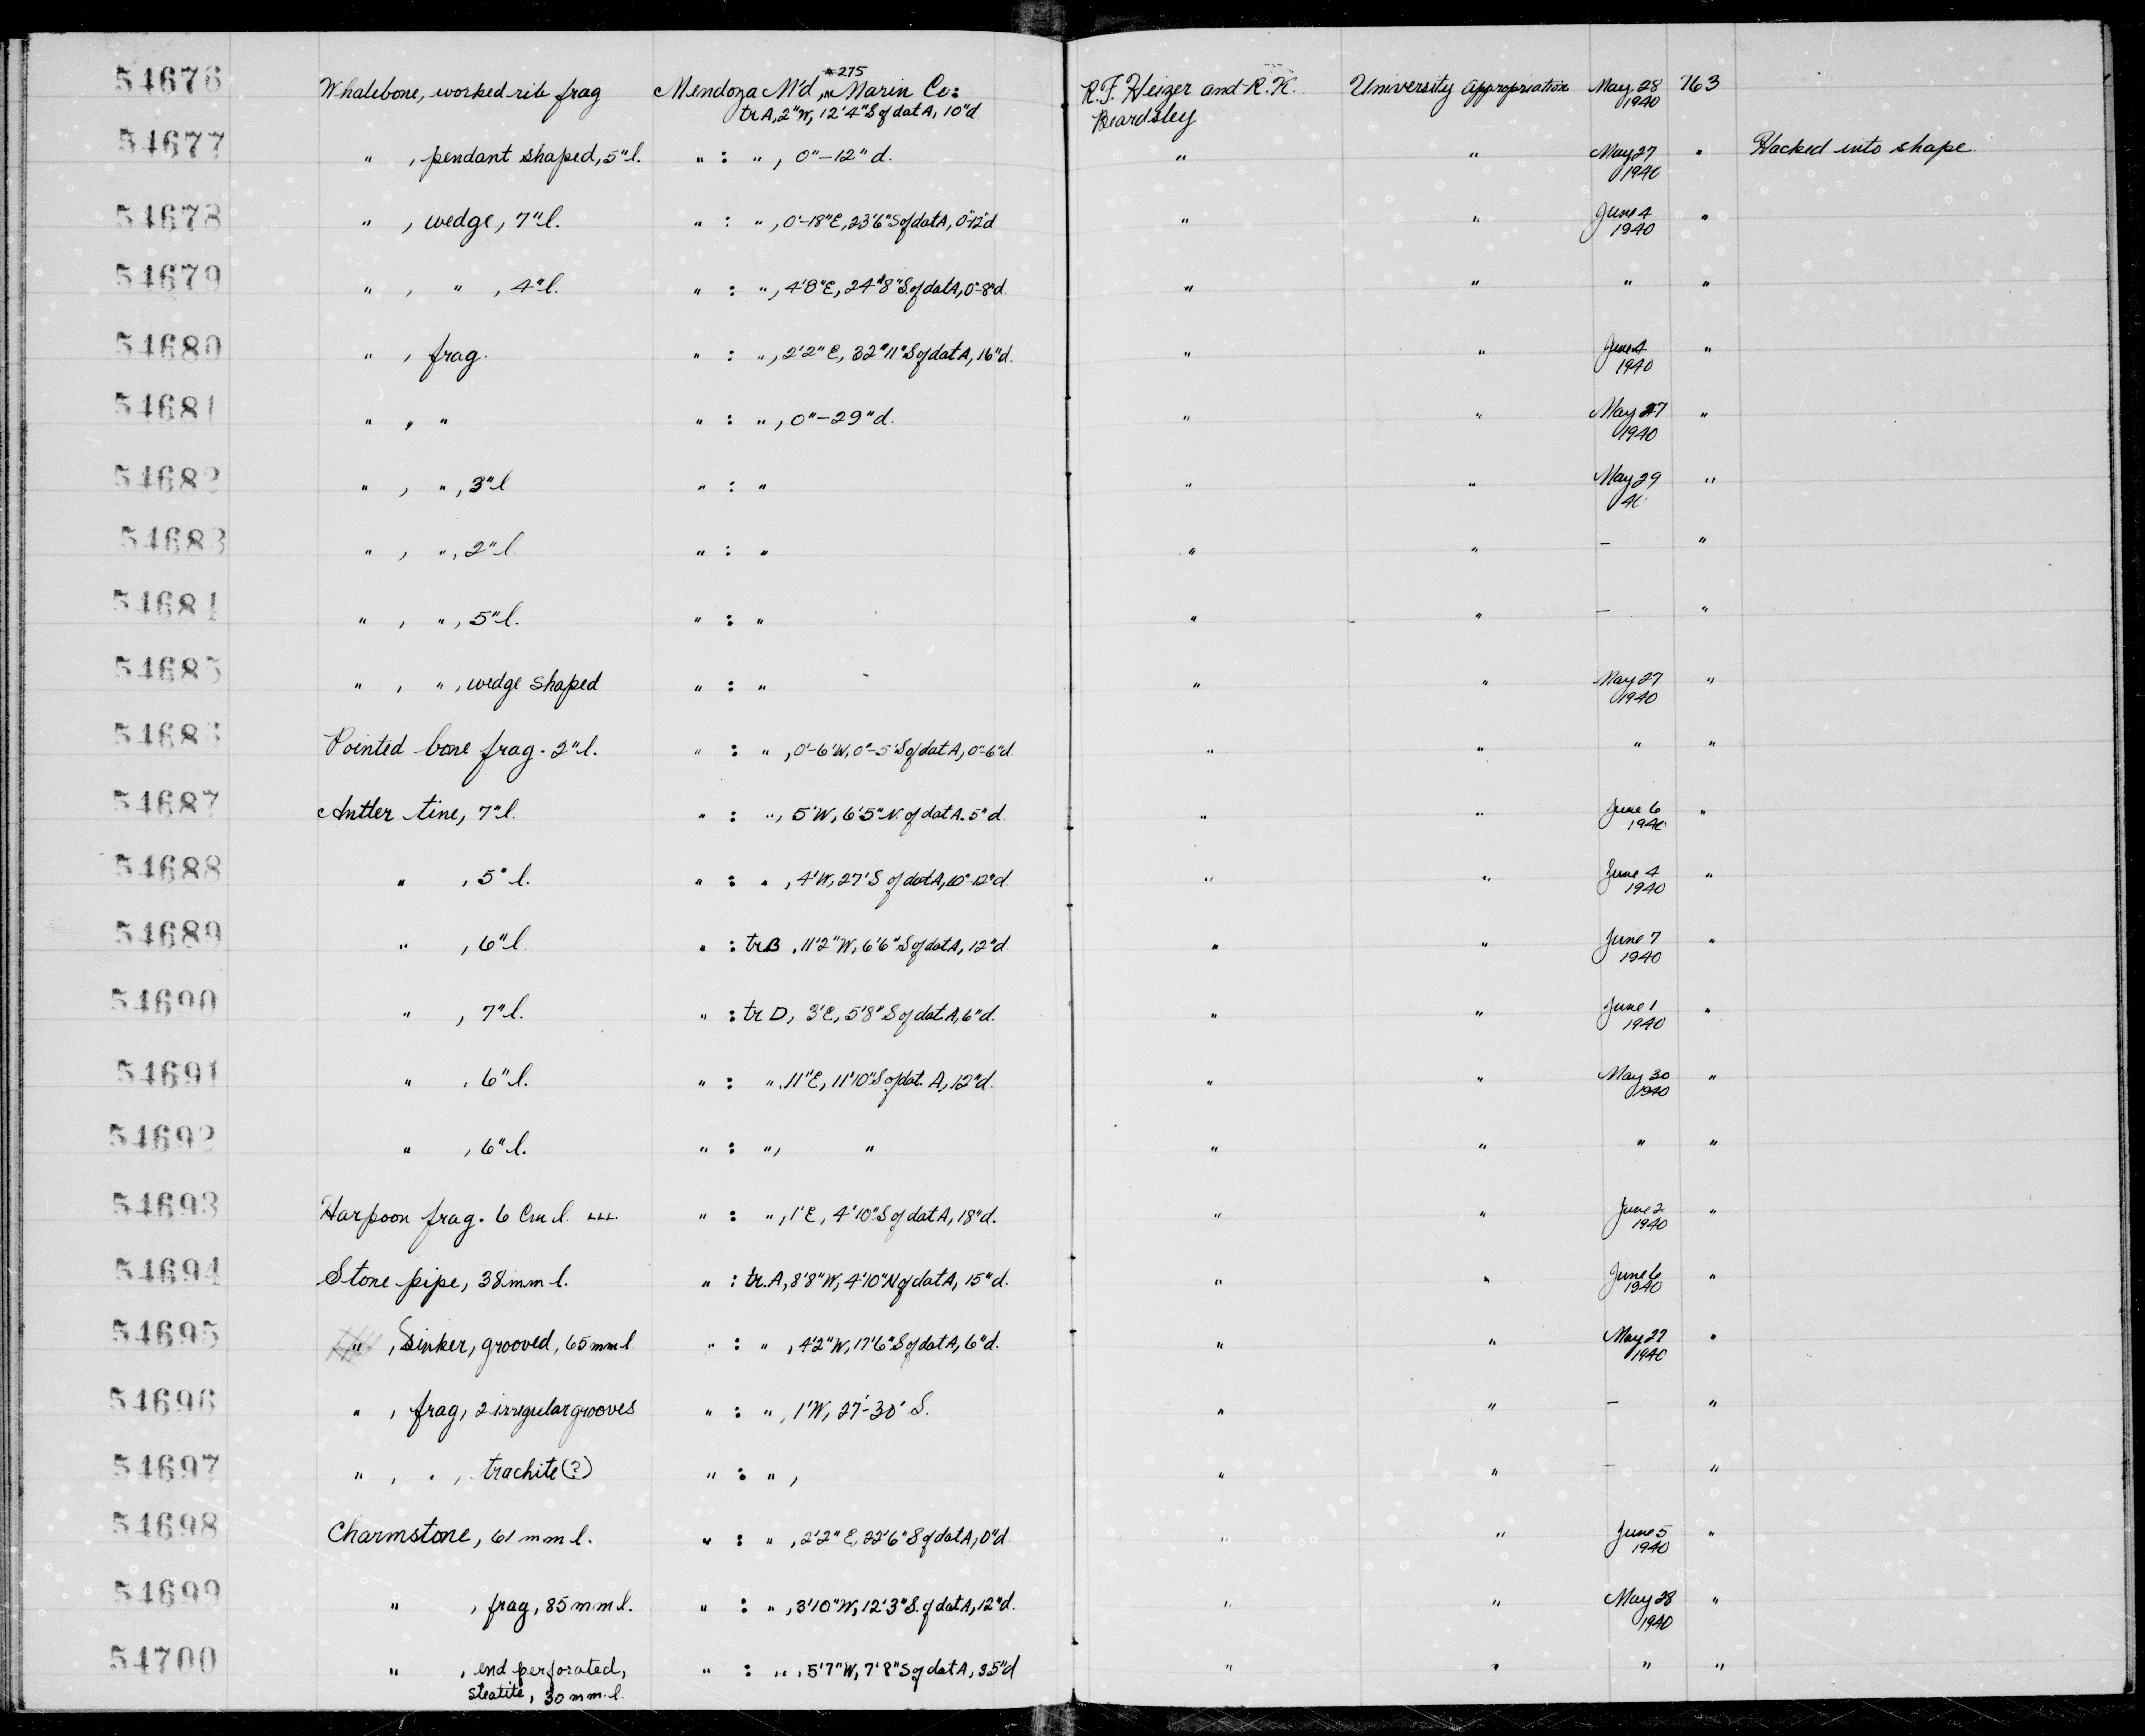 54676 Whalebone, worked rib frag Mendoza M'd, #275 in Marin Co: R.F. Heizer and R.K. University Appropriation May 28 763
trA, 2"W, 12'4"S of dat A, 10"d Beardsley 1940
54677 " , pendant shaped, 5"l. " : " , 0"-12" d. " " May 27 " Hacked into shape
1940
54678 " , wedge, 7"l. " : " , 0'-18"E, 23'6"S of dat A, 0"-12"d " " June 4 "
1940
54679 " , " , 4"l. " : " , 4'8"E, 24'8"S. of dat A, 0"-8"d. " " " "
54680 " , frag. " : " , 2'2"E, 32'11"S of dat A, 16"d. " " June 4 "
1940
54681 " , " " : " , 0"-29"d. " " May 27 "
1940
54682 " , " , 3"l " : " " " May 29 "
40
54683 " , " , 2"l. " : " " " – "
54684 " , " , 5"l. " : " " " – "
54685 " , " , wedge shaped " : " " " May 27 "
1940
54686 Pointed bone frag. 2"l. " : " , 0'-6'W, 0'-5'S of dat A, 0"-6"d. " " " "
54687 Antler tine, 7"l. " : " , 5'W, 6'5"N. of dat A. 5"d. " " June 6 "
1940
54688 " , 5"l. " : " , 4'W, 27'S of dat A, 10"-12"d. " " June 4 "
1940
54689 " , 6"l. " : trB , 11'2"W, 6'6"S of dat A, 12"d. " " June 7 "
1940
54690 " , 7"l. " : tr D, 3'E, 5'8"S of dat. A, 6"d. " " June 1 "
1940
54691 " , 6"l. " : " , 11"E, 11'10"S of dat. A, 12"d. " " May 30 "
1940
54692 " , 6"l. " : " , " " " " "
54693 Harpoon frag. 6 Cm l. LLL. " : " , 1'E, 4'10"S of dat A, 18"d. " " June 2 "
1940
54694 Stone pipe, 38 mm l. " : tr. A, 8'8"W, 4'10"N of dat A, 15"d. " " June 6 "
1940
54695 " , Sinker, grooved, 65 mm l " : " , 4'2"W, 17'6"S of dat A, 6"d. " " May 27 "
1940
54696 " , frag, 2 irregular grooves " : " , 1'W, 27'-30' S. " " – "
54697 " , " , trachite (?) " : " , " " – "
54698 Charmstone, 61 mm l. " : " , 2'2"E, 22'6"S of dat A, 0"d. " " June 5 "
1940
54699 " , frag, 85 mm l. " : " , 3'10"W, 12'3"S. of dat A, 12"d. " " May 28 "
1940
54700 " , end perforated, " : " , 5'7"W, 7'8"S of dat A, 35"d " " " "
steatite, 30 mm. l.